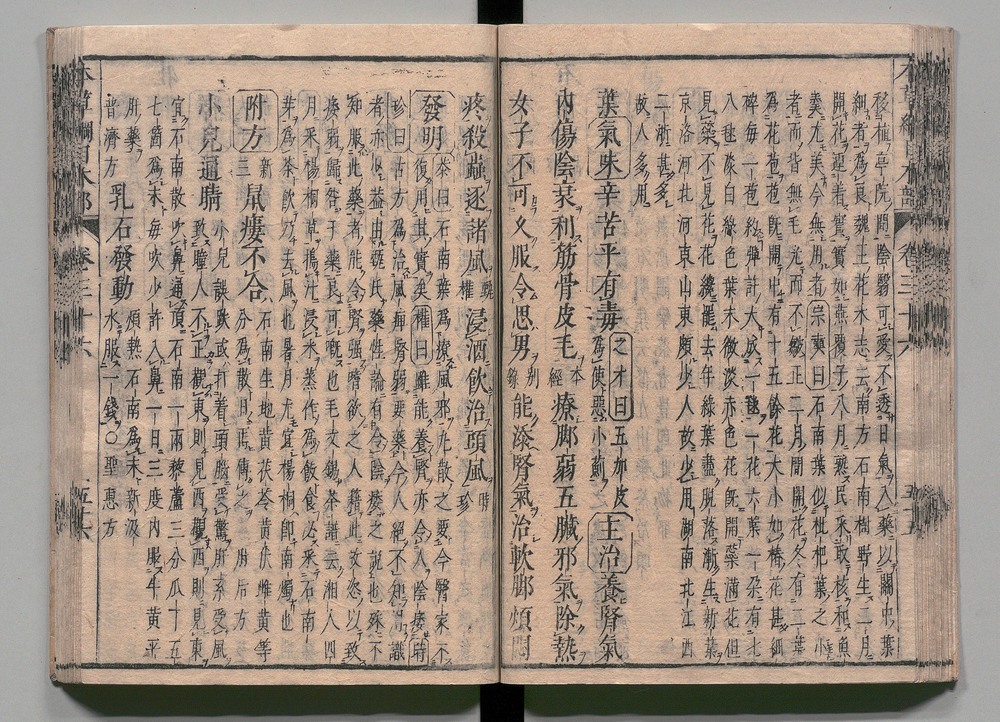 本草綱目木部 卷三十六 五十五
移植亭院間陰翳可愛不透日氣入藥以關中葉
細者為良魏王花木志云南方石南樹野生二月
開花連着實實如燕覆子八月熟民采取核和魚
羹尤美今無用者宗奭曰石南葉似枇杷葉之小
者而背無毛光而不皺正二月間開花冬有二葉
為花苞苞既開中有十五餘花大小如椿花甚細
碎每一苞約彈許大成一毬一花六葉一朵有七
八毬淡白綠色葉末微淡赤色花既開蘂滿花但
見蘂不見花花纔罷去年綠葉盡脱落漸生新葉
京洛河北河東山東頗少人故少用湖南北江西
二浙甚多
故人多用
葉氣味辛苦平有毒之才曰五加皮為之使惡小薊主治養腎氣
內傷陰衰利筋骨皮毛本經療脚弱五臟邪氣除熱
女子不可久服令思男別錄能添腎氣治軟脚煩悶
疼殺蟲逐諸風甄權浸酒飲治頭風時珍
發明恭曰石南葉為療風邪丸散之要今醫家不
復用其實矣權曰雖能養腎亦令人陰痿時
珍曰古方為治風痺腎弱要藥今人絕不知用識
者亦少蓋由甄氏藥性論有令陰痿之說也殊不
知服此藥者能令腎強嗜欲之人藉此放恣以致
痿弱歸咎于藥良可慨也毛文錫茶譜云湘人四
月采楊桐草搗汁浸米蒸作為飯食必采石南
芽為茶飲乃去風也暑月尤宜楊桐即南燭也
附方新三鼠瘻不合石南生地黃茯苓黃連雌黃等
分為散日再傅之肘后方
小兒通睛小兒誤跌或打着頭腦受驚肝系受風
致瞳人不正觀東則見西觀西則見東
宜石南散吹鼻通頂石南一兩藜蘆三分瓜丁五
七箇為末每吹少許入鼻一日三度內服牛黃平
肝藥
普濟方乳石發動煩熱石南為末新汲水服一錢〇聖惠方
本草綱目木部 卷三十六 五十六